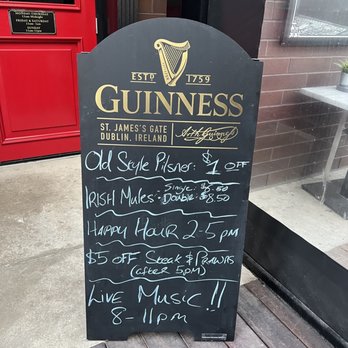 ESTD 1759
GUINNESS
ST. JAMES'S GATE
DUBLIN, IRELAND
Old Style Pilsner: $1 OFF
IRISH Mules: Single: $6.50
Double: $8.50
HAPPY HOUR 2-5 pm
$5 OFF Steak & PRAWNS
(after 5PM)
LIVE MUSIC!!
8-11pm